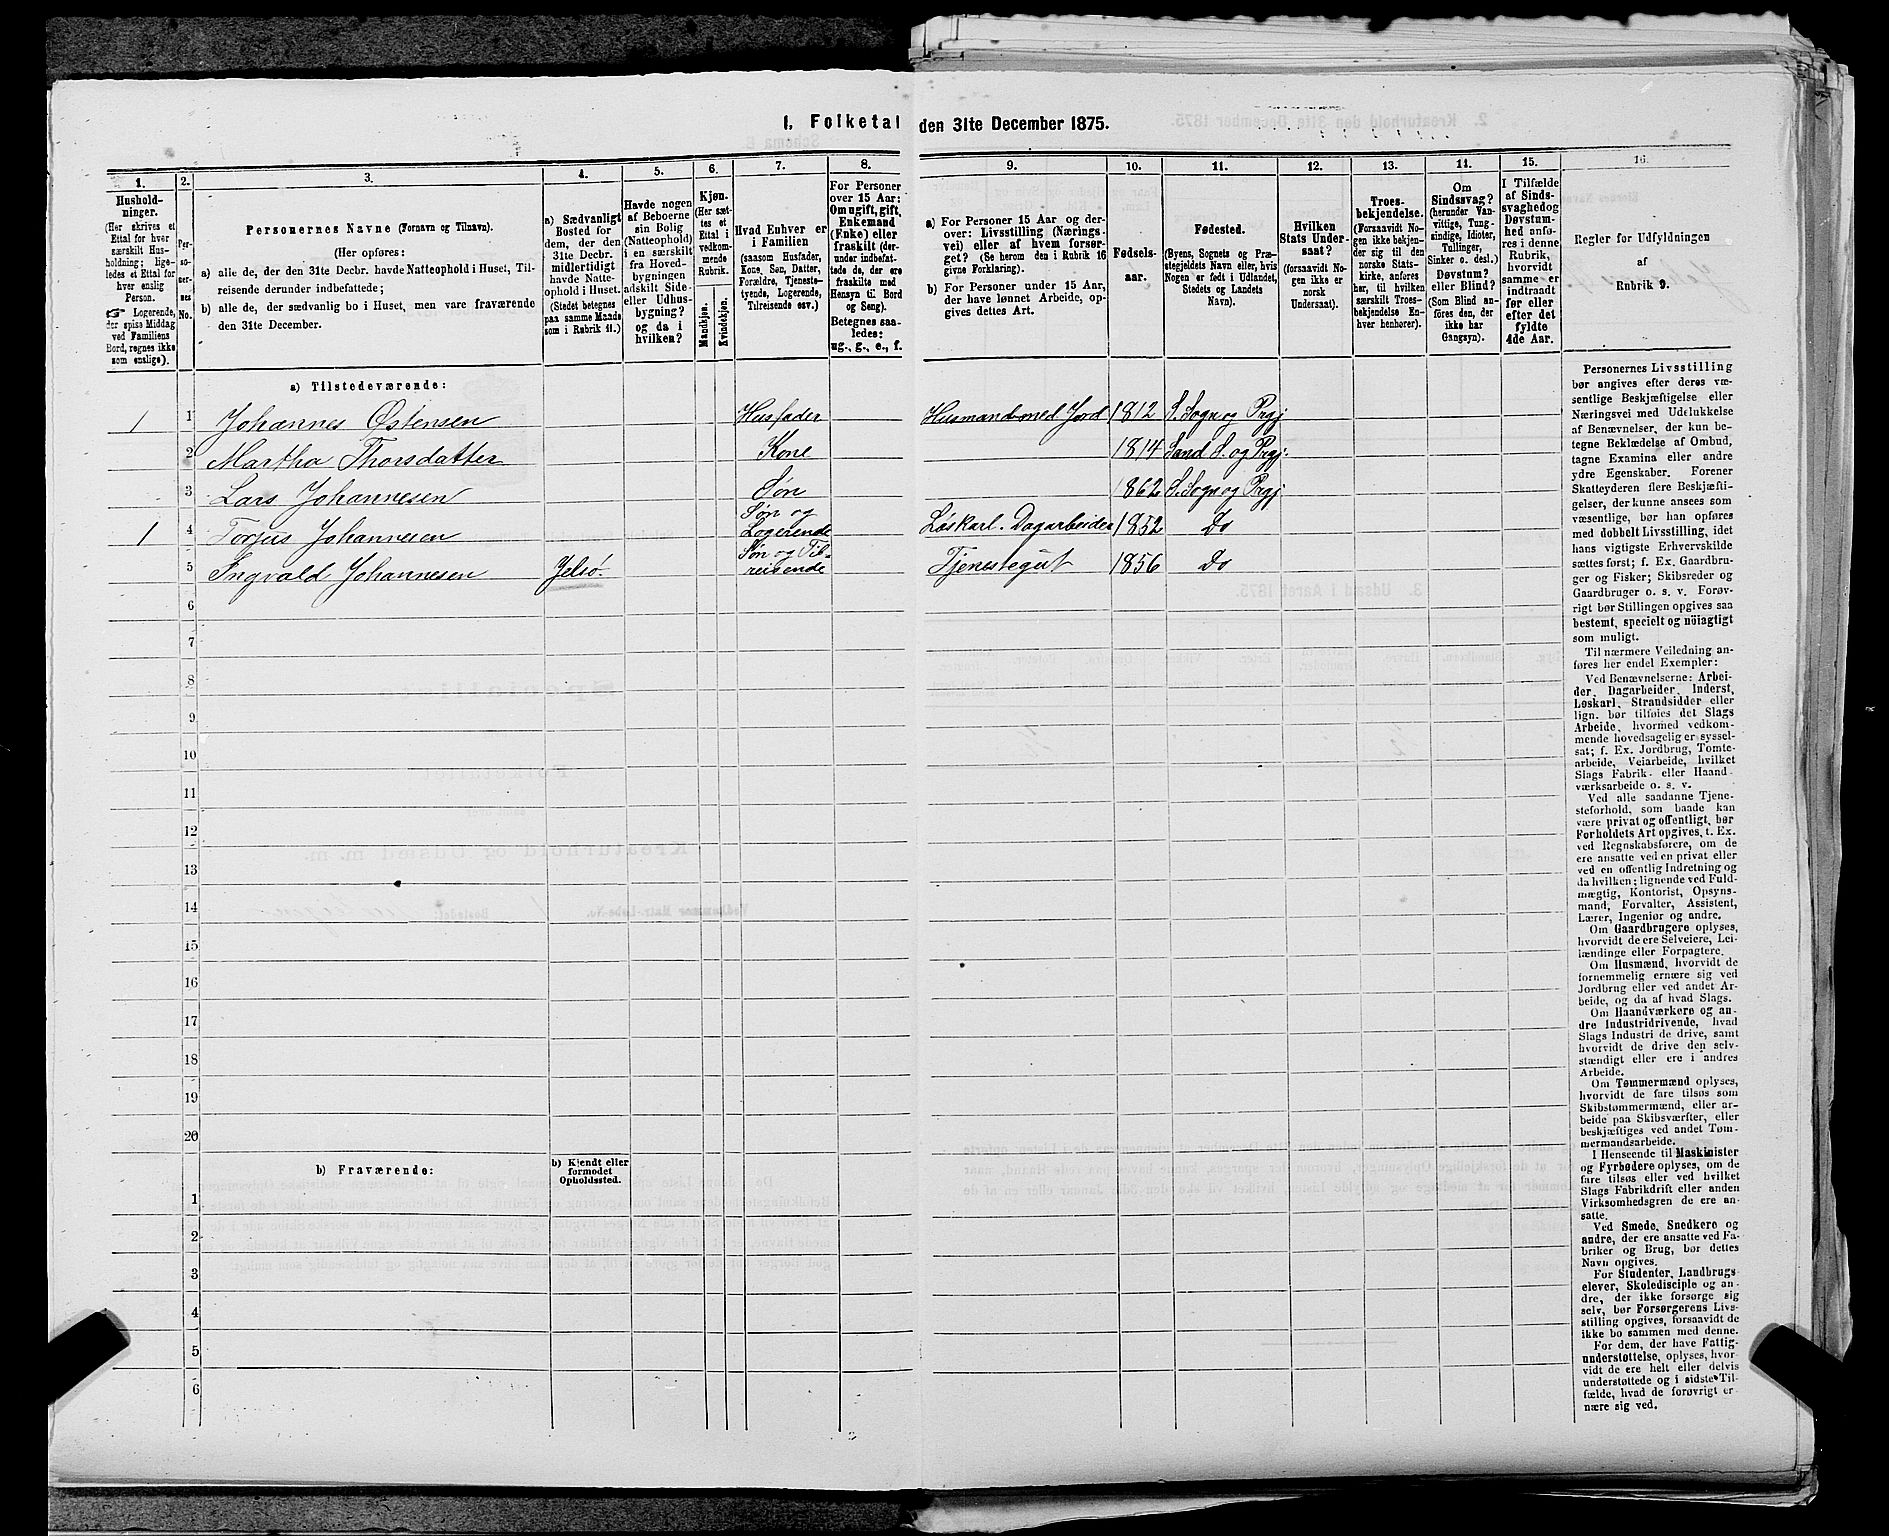 1. Folketal den 31te December 1875.
1. 2. 3. 4. 5. 6. 7. 8. 9. 10. 11. 12. 13. 14. 15. 16.
Hushold-
ninger.
(Her skrives et
Ettal for hver
særskilt Hus-
holdning; lige-
ledes et Ettal for
hver enslig
Person.
☞ Logerende,
der spise Middag
ved Familiens
Bord, regnes ikke
som enslige).
Per-
so-
ner-
nes
No.
Personernes Navne (Fornavn og Tilnavn).
(Her opføres:
a) alle de, der den 31te Decbr. havde Natteophold i Huset, Til-
reisende derunder indbefattede;
b) alle de, der sædvanlig bo i Huset, men vare fraværende
den 31te December.
a) Sædvanligt
Bosted for
dem, der den
31te Decbr.
midlertidigt
havde Natte-
ophold i Huset.
(Stedet betegnes
paa samme Maade
som i Rubrik 11.)
Havde nogen
af Beboerne
sin Bolig
(Natteophold)
i en særskilt
fra Hoved-
bygningen
adskilt Side-
eller Udhus-
bygning?
og da i
hvilken?
Kjøn.
(Her sæt-
tes et
Ettal i
vedkom-
mende
Rubrik.
Mandkjøn.
Kvindekjøn.
Hvad Enhver er
i Familien
(saasom Husfader,
Kone, Søn, Datter,
Forældre, Tjeneste-
tyende, Logerende,
Tilreisende osv.)
For Personer
over 15 Aar:
Om ugift, gift,
Enkemand
(Enke) eller
fraskilt (der-
under indbefat-
tede de, der ere
fraskilte med
Hensyn til Bord
og Seng).
Betegnes saa-
ledes:
ug., g., e., f.
a) For Personer 15 Aar og der-
over: Livsstilling (Nærings-
vei) eller af hvem forsør-
get? (Se herom den i Rubrik 16
givne Forklaring).
b) For Personer under 15 Aar,
der have lønnet Arbeide, op-
gives dettes Art.
Fødsels-
aar.
Fødested.
(Byens, Sognets og Præ-
stegjeldets Navn eller, hvis
Nogen er født i Udlandet,
Stedets og Landets
Navn).
Hvilken
Stats Under-
saat?
(forsaavidt No-
gen ikke er
norsk
Undersaat).
Troes-
bekjendelse.
(Forsaavidt No-
gen ikke bekjen-
der sig til den
norske Stats-
kirke, anføres
her, til hvilken
særskilt Troes-
bekjendelse En-
hver henhører).
Om
Sindssvag?
(herunder Van-
vittige, Tung-
sindige, Idioter,
Tullinger,
Sinker o. desl.)
Døvstum?
eller Blind?
(Som Blind an-
føres den, der
ikke har
Gangsyn).
I Tilfælde
af Sinds-
svaghed og
Døvstum-
hed anfø-
res i denne
Rubrik,
hvorvidt
samme er
indtraadt
før eller
efter det
fyldte
4de Aar.
Regler for Udfyldningen
af
Rubrik 9.
a) Tilstedeværende:
1 1 Johannes Østensen Husfader Husmand med Jord 1812 S. Sogn og Prgj
2 Martha Thorsdatter Kone 1814 Sand S. og Prgj.
3 Lars Johannesen Søn 1862 S. Sogn og Prgj
1 4 Torjus Johannesen Søn og Logerende Løskarl. Dagarbeider 1852 Do
5 Ingvald Johannesen Jelsø. Søn og Til-
reisende Tjenestegut 1856 Do
6
7
8
9
10
11
12
13
14
15
16
17
18
19
20
b) Fraværende:
b) Kjendt eller
formodet
Opholdssted.
1
2
3
4
5
6
Personernes Livsstilling
bør angives efter deres væ-
sentlige Beskjæftigelse eller
Næringsvei med Udelukkelse
af Benævnelser, der kun be-
tegne Beklædelse af Ombud,
tagne Examina eller andre
ydre Egenskaber. Forener
Skatteyderen flere Beskjæfti-
gelser, der kunne ansees som
væsentlige, bør han opføres
med dobbelt Livsstilling, idet
hans vigtigste Erhvervskilde
sættes først; f. Ex. Gaardbru-
ger og Fisker; Skibsreder og
Gaardbruger o. s. v. Forøv-
rigt bør Stillingen opgives saa
bestemt, specielt og nöiagtigt
som muligt.
Til nærmere Veiledning an-
føres her endel Exempler:
Ved Benævnelserne: Arbei-
der, Dagarbeider, Inderst,
Løskarl, Strandsidder eller
lign. bør tilføies det Slags
Arbeide, hvormed vedkom-
mende hovedsagelig er syssel-
sat; f. Ex. Jordbrug, Tomte-
arbeide, Veiarbeide, hvilket
Slags Fabrik- eller Haand-
værksarbeide o. s. v.
Ved alle saadanne Tjene-
steforhold, som baade kan
være privat og offentligt, bør
Forholdets Art opgives, t. Ex.
ved Regnskabsførere, om de
ere ansatte ved en privat eller
ved en offentlig Indretning og
da hvilken; lignende ved Fuld-
mægtig, Kontorist, Opsyns-
mand, Forvalter, Assistent,
Lærer, Ingeniør og andre.
Om Gaardbrugere oplyses,
hvorvidt de ere Selveiere, Lei-
lændinge eller Forpagtere.
Om Husmænd, hvorvidt de
fornemmelig ernære sig ved
Jordbrug eller ved andet Ar-
beide, og da af hvad Slags.
Om Haandværkere og an-
dre Industridrivende, hvad
Slags Industri de drive, samt
hvorvidt de drive den selv-
stændigt eller ere i andres
Arbeide.
Om Tømmermænd oplyses,
hvorvidt de fare tilsøs som
Skibstømmermænd, eller ar-
beide paa Skibsværfter, eller
beskjæftiges ved andet Tøm-
mermandsarbeide.
I Henseende til Maskinister
og Fyrbødere oplyses, om de
fare tilsøs eller ved hvilket
Slags Fabrikdrift eller anden
Virksomhedsgren de ere an-
satte.
Ved Smede, Snedkere og
andre, der ere ansatte ved Fa-
briker og Brug, bør dettes
Navn opgives.
For Studenter, Landbrugs-
elever, Skoledisciple og an-
dre, der ikke forsørge sig
selv, bør Forsørgerens Livs-
stilling opgives, forsaavidt de
ikke bo sammen med denne.
For dem, der have Fattig-
understøttelse, oplyses, hvor-
vidt de ere helt eller delvis
understøttede og i sidste Til-
fælde, hvad de forøvrigt er-
nære sig ved.